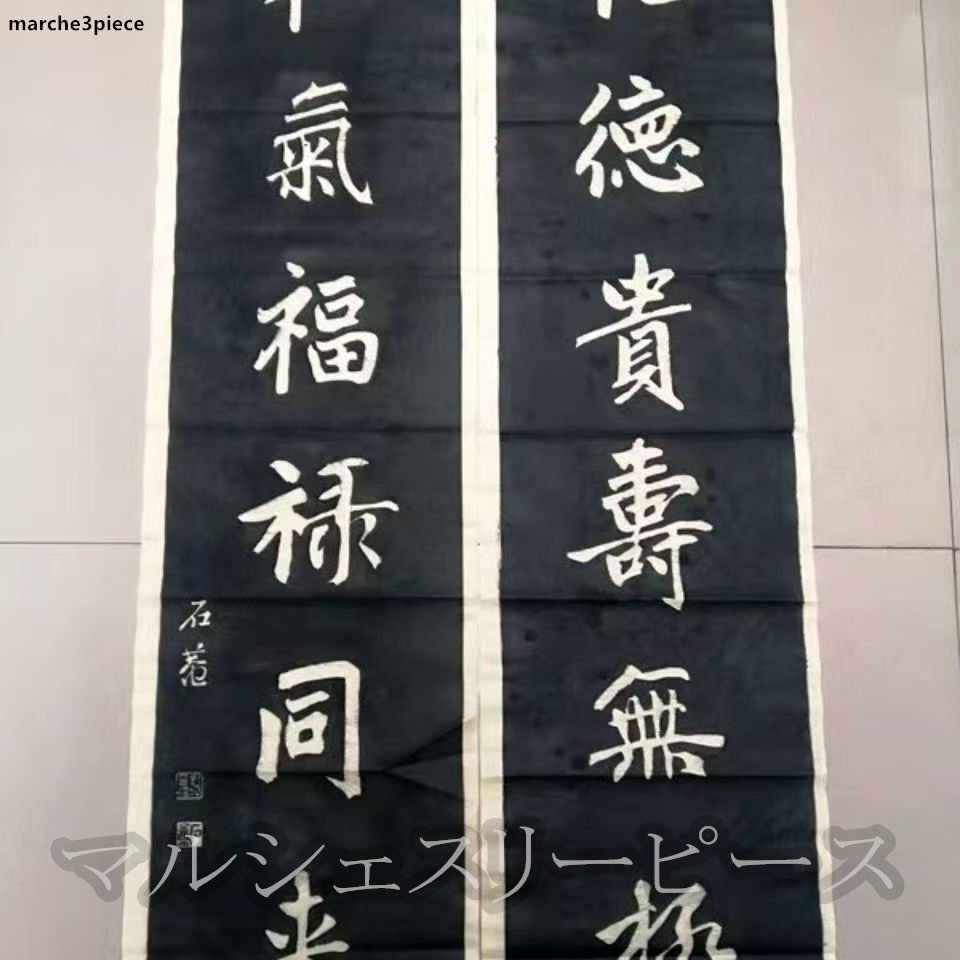 marche3piece
德貴壽無極
氣福禄同来
石菴
マルシェスリーピース